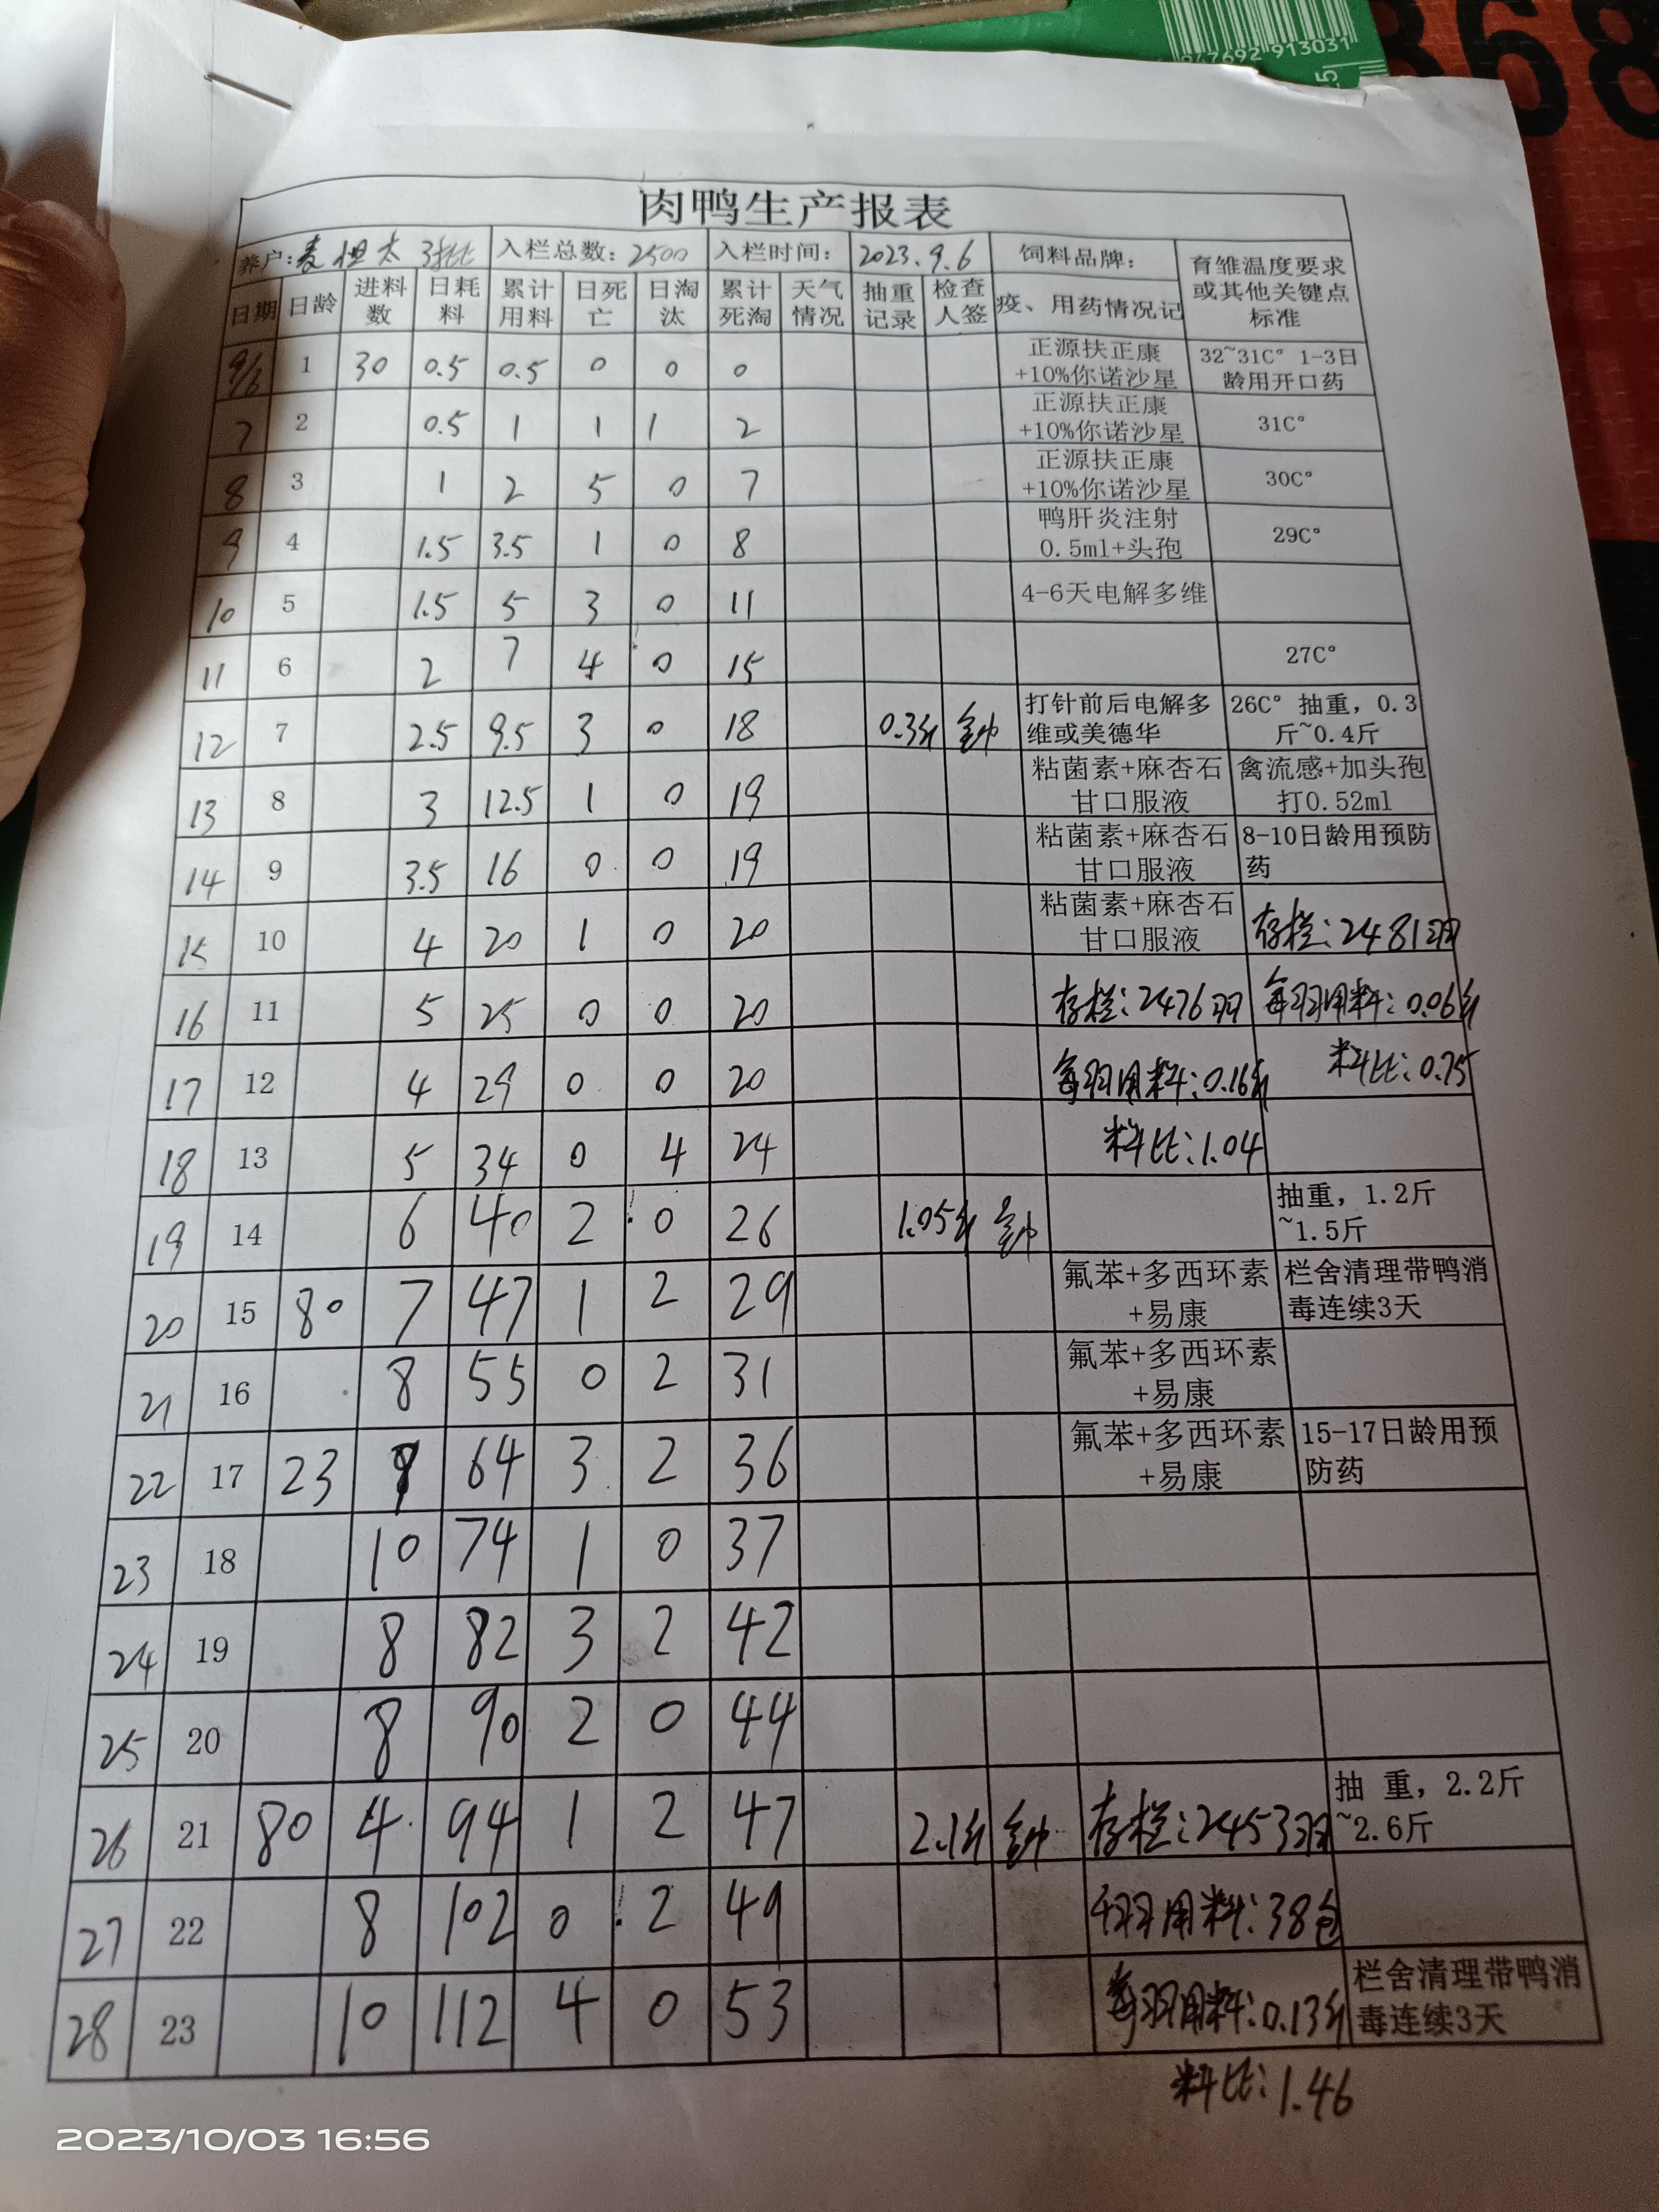 947692 913031
5
868
肉鸭生产报表
养户: 麦恒太 3批 入栏总数: 2500 入栏时间: 2023.9.6 饲料品牌: 育雏温度要求或其他关键点标准
日期 日龄 进料数 日耗料 累计用料 日死亡 日淘汰 累计死淘 天气情况 抽重记录 检查人签 疫、用药情况记
9/6 1 30 0.5 0.5 0 0 0 正源扶正康+10%你诺沙星 32~31C° 1-3日龄用开口药
7 2 0.5 1 1 1 2 正源扶正康+10%你诺沙星 31C°
8 3 1 2 5 0 7 正源扶正康+10%你诺沙星 30C°
9 4 1.5 3.5 1 0 8 鸭肝炎注射0.5ml+头孢 29C°
10 5 1.5 5 3 0 11 4-6天电解多维
11 6 2 7 4 0 15 27C°
12 7 2.5 9.5 3 0 18 0.3斤 打针前后电解多维或美德华 26C° 抽重，0.3斤~0.4斤
13 8 3 12.5 1 0 19 粘菌素+麻杏石甘口服液 禽流感+加头孢打0.52ml
14 9 3.5 16 0 0 19 粘菌素+麻杏石甘口服液 8-10日龄用预防药
15 10 4 20 1 0 20 粘菌素+麻杏石甘口服液 存栏: 2481羽
16 11 5 25 0 0 20 存栏: 2476羽 每羽用料: 0.06斤
17 12 4 29 0 0 20 每羽用料: 0.16斤 料比: 0.75
18 13 5 34 0 4 24 料比: 1.04
19 14 6 40 2 0 26 1.05斤 抽重，1.2斤~1.5斤
20 15 80 7 47 1 2 29 氟苯+多西环素+易康 栏舍清理带鸭消毒连续3天
21 16 8 55 0 2 31 氟苯+多西环素+易康
22 17 23 9 64 3 2 36 氟苯+多西环素+易康 15-17日龄用预防药
23 18 10 74 1 0 37
24 19 8 82 3 2 42
25 20 8 90 2 0 44
26 21 80 4 94 1 2 47 2.1斤 存栏: 2453羽 抽 重，2.2斤~2.6斤
27 22 8 102 0 2 49 千羽用料: 38包
28 23 10 112 4 0 53 每羽用料: 0.13斤 栏舍清理带鸭消毒连续3天
料比: 1.46
2023/10/03 16:56